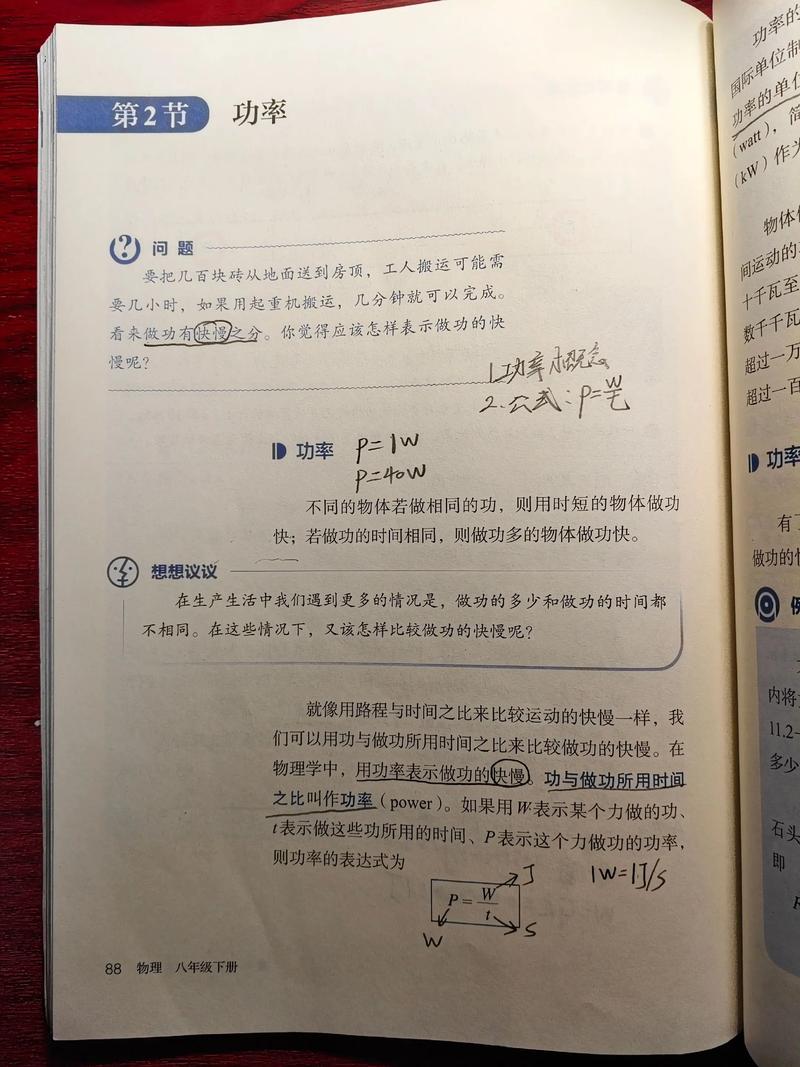 第2节 功率
问题
要把几百块砖从地面送到房顶，工人搬运可能需
要几小时，如果用起重机搬运，几分钟就可以完成。
看来做功有快慢之分。你觉得应该怎样表示做功的快
慢呢？
1.功率概念
2.公式：P=W/t
功率 P=1W
P=40W
不同的物体若做相同的功，则用时短的物体做功
快；若做功的时间相同，则做功多的物体做功快。
想想议议
在生产生活中我们遇到更多的情况是，做功的多少和做功的时间都
不相同。在这些情况下，又该怎样比较做功的快慢呢？
就像用路程与时间之比来比较运动的快慢一样，我
们可以用功与做功所用时间之比来比较做功的快慢。在
物理学中，用功率表示做功的快慢。功与做功所用时间
之比叫作功率（power）。如果用 W 表示某个力做的功、
t 表示做这些功所用的时间、P 表示这个力做功的功率，
则功率的表达式为
J 1W=1J/s
P=W/t
W S
88 物理 八年级下册
功率的
国际单位制
功率的单位
（watt），简
（kW）作为
物体
间运动的
十千瓦至
数千千瓦
超过一万
超过一百
功率
有了
做功的
例
内将
11.2-
多少
石头
即